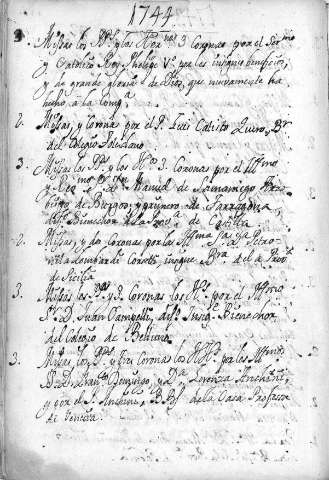 1744
3. Missas los PP. y los HH.nos 3 Coronas por el Ser.mo
y Catolico Rey Phelipe V.o por los insignes beneficios,
y de grande gloria de Dios, que nuevamente ha
hecho a la Comp.a
2. Missas, y Coronas por el P. Luis Calisto
del Colegio
3. Missas los PP. y los HH.s 3. Coronas por el Ill.mo
y R.mo S.or D. Manuel de Samaniego Arzo-
bispo de Burgos, y primero de Tarragona,
Bienechor de la Prov.a de Castilla
2. Missas, y dos Coronas por la Ill.ma S.ra D.a Petro-
nila insigne B.ra de la Prov.a
de Sicilia
3. Missas los PP. y 3. Coronas los HH. por el Ill.mo
S.r D. Juan insig.e Bienechor
del Colegio de Belluno
3. Missas los PP. y tres Coronas los HH.s por los Ill.mos
D. Fran.co y D.a Lorenza
y por el S. de la Casa Professa
de Venecia.